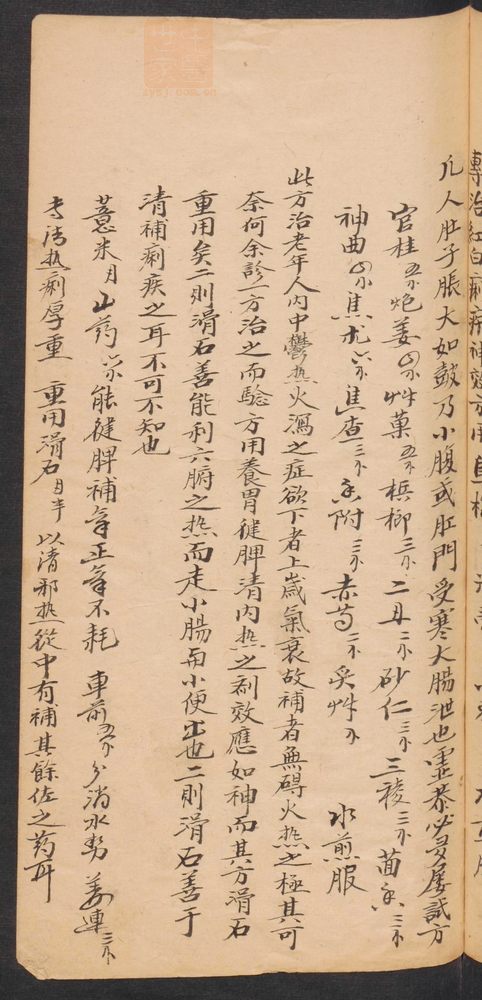 專治紅白痢疾神效方用
凡人肚子脹大如鼓乃小腹或肛門受寒大腸泄也靈恭必多屡試方
官桂五卜炮姜四卜艸菓五卜槟榔三卜二丑二卜砂仁三卜三稜三卜茴香三卜
神曲四卜焦朮六卜焦查三卜香附三卜赤芍二卜炙艸卜 水煎服
此方治老年人內中鬱热火瀉之症欲下者上歲氣衰故補者無碍火热之極其可
奈何余診一方治之而驗方用養胃健脾清內热之剂效應如神而其方滑石
重用矣二則滑石善能利六腑之热而走小腸而小便出也二則滑石善于
清補痢疾之耳不可不知也
薏米 山药六卜能健脾補氣正氣不耗 車前五卜分消水势 姜連三卜
清热痢厚重 重用滑石 以清邪热從中有補其餘佐之药耳